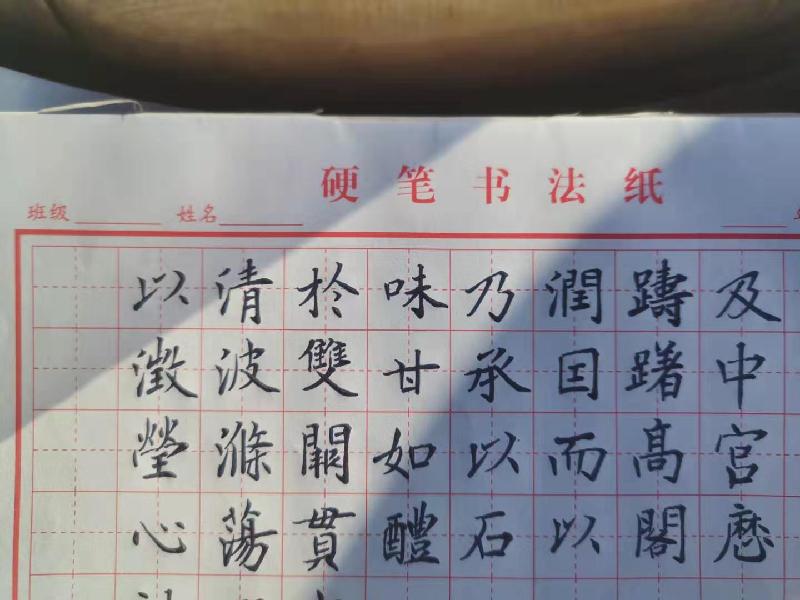 硬笔书法纸
班级 姓名
及中宮歷
躊躇高閣
潤因而以
乃承以石
味甘如醴
於雙闕貫
清波滌蕩
以澂瑩心